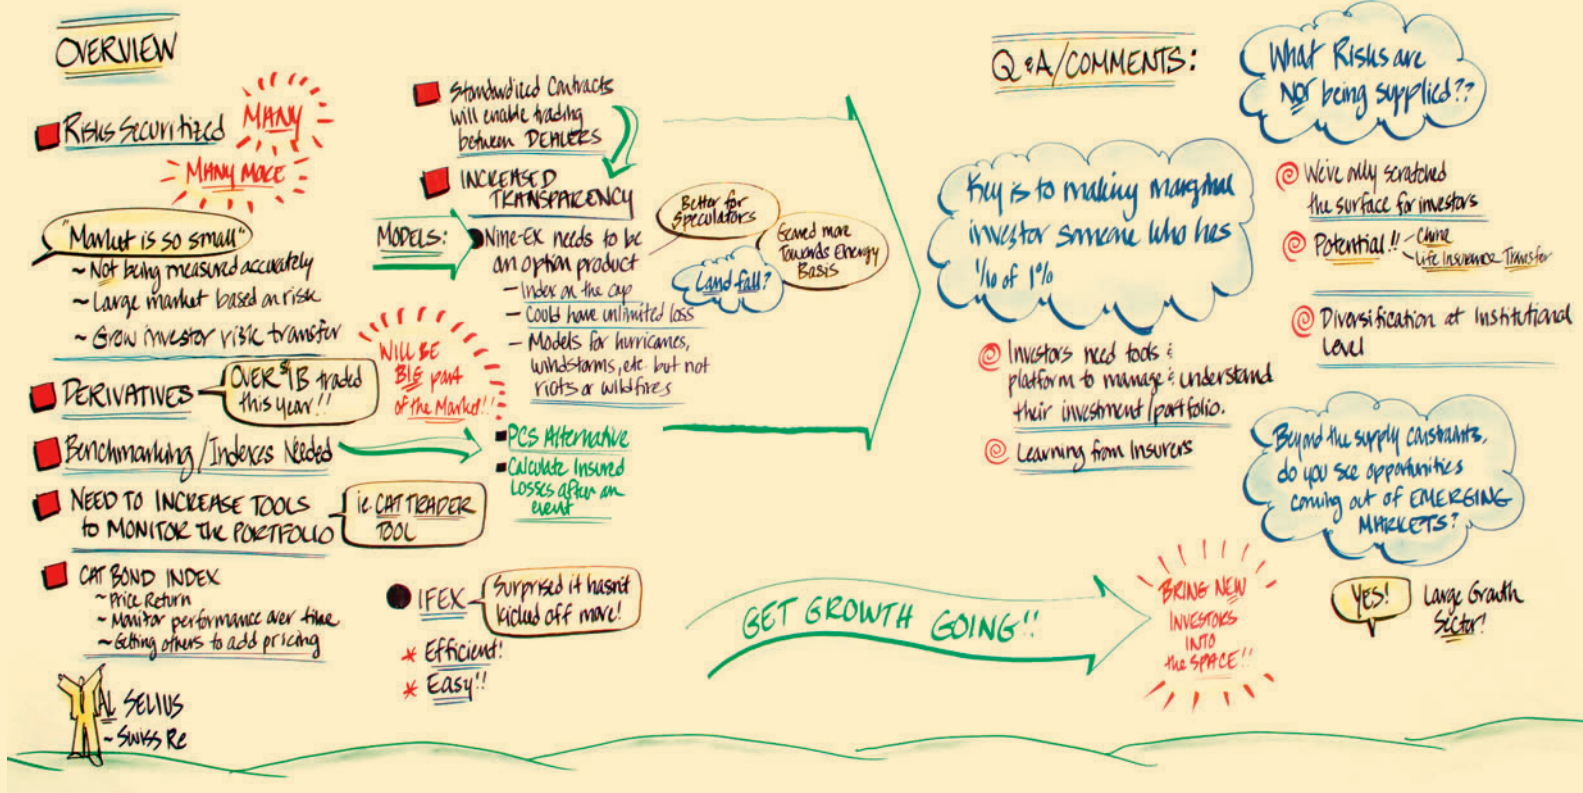 OVERVIEW
Risks Securitized
MANY
MANY MORE
"Market is so small"
~ Not being measured accurately
~ Large market based on risk
~ Grow investor risk transfer
DERIVATIVES
OVER $1B traded
this year!!
WILL BE
BIG part
of the Market!!
Benchmarking/Indexes Needed
PCS Alternative
Calculate Insured
Losses after an
event
NEED TO INCREASE TOOLS
to MONITOR the PORTFOLIO
ie. CAT TRADER
TOOL
CAT BOND INDEX
~ Price Return
~ Monitor performance over time
~ Getting others to add pricing
AL SELIUS
~ SWISS Re
Standardized Contracts
will enable trading
between DEALERS
INCREASED
TRANSPARENCY
MODELS:
Nine-Ex needs to be
an option product
Better for
Speculators
Geared more
Towards Energy
Basis
Land fall?
— Index on the cap
— Could have unlimited loss
— Models for hurricanes,
windstorms, etc. but not
riots or wildfires
IFEX
Surprised it hasn't
kicked off more!
* Efficient!
* Easy!!
GET GROWTH GOING!!
BRING NEW
INVESTORS
INTO
the SPACE!!
Q & A/COMMENTS:
What Risks are
NOT being supplied??
Key is to making marginal
investor someone who has
1/10 of 1%
Investors need tools &
platform to manage & understand
their investment/portfolio.
Learning from Insurers
We've only scratched
the surface for investors
Potential!! - China
- Life Insurance Transfer
Diversification at Institutional
Level
Beyond the supply constraints,
do you see opportunities
coming out of EMERGING
MARKETS?
YES!
Large Growth
Sector!